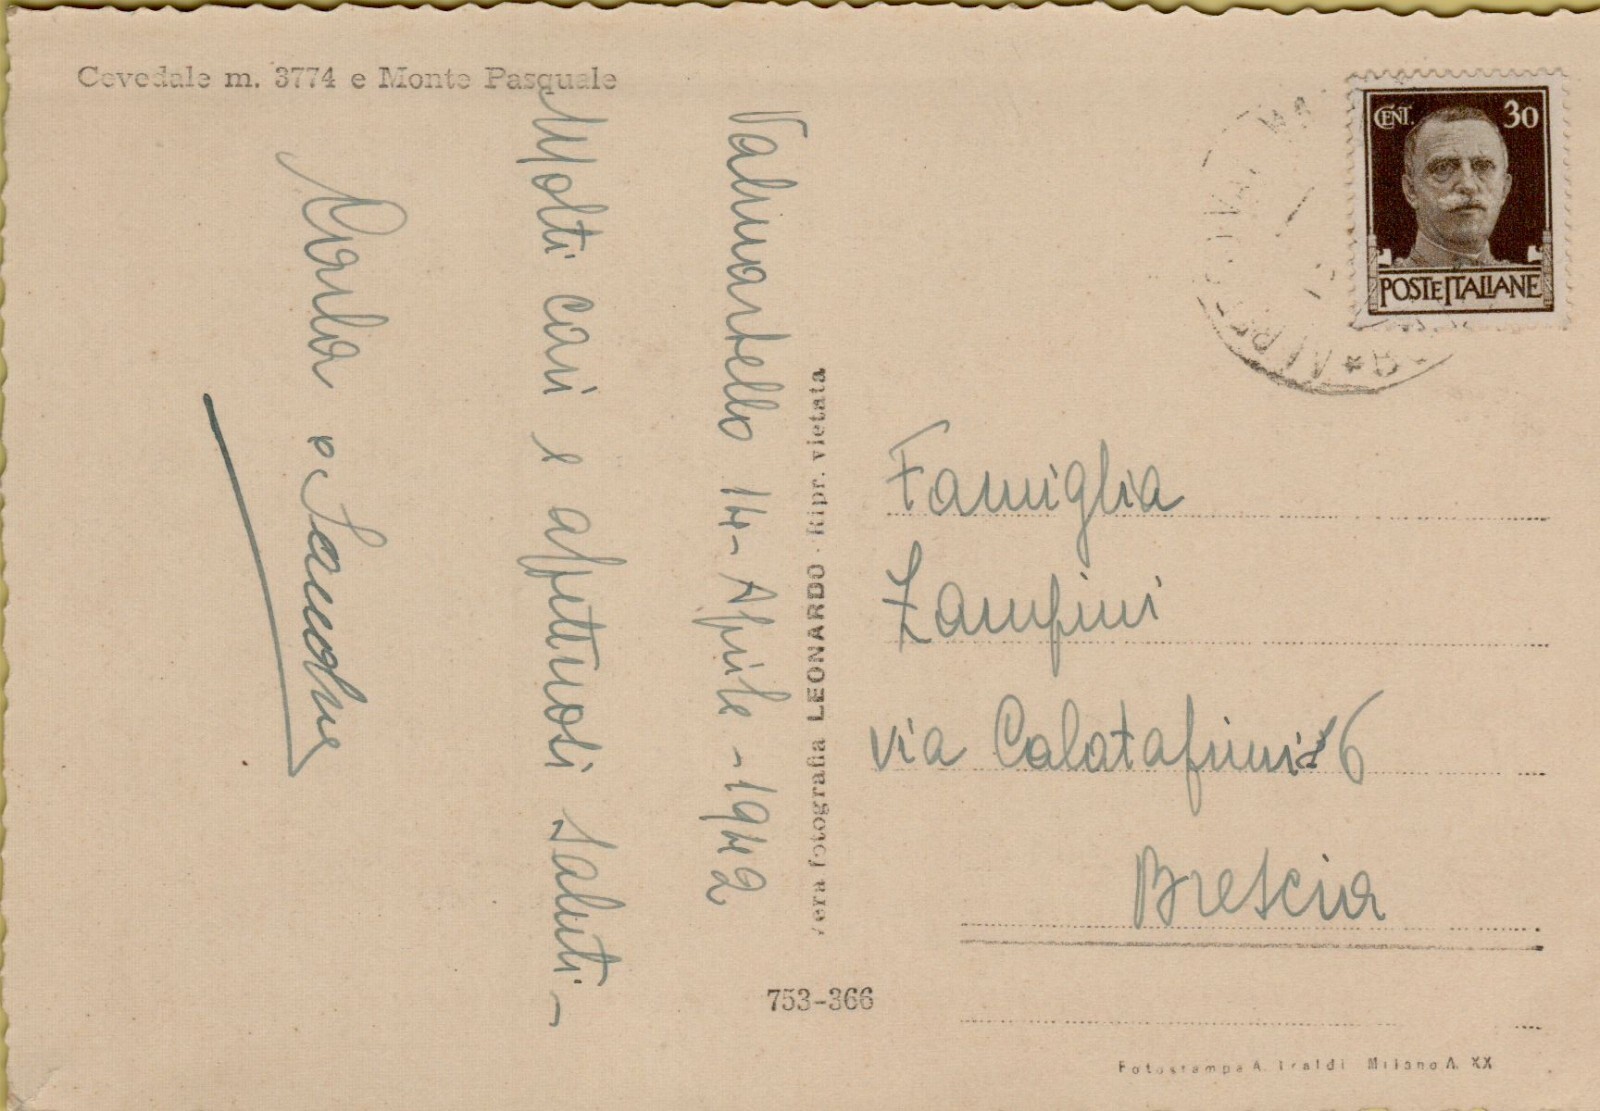 Cevedale m. 3774 e Monte Pasquale
CENT. 30
POSTE ITALIANE
Valmartello 14-Aprile-1942
Molti cari e affettuosi saluti-
Carla e
Vera fotografia LEONARDO - Ripr. vietata
Famiglia
Zampini
via Calatafimi 6
Brescia
753-366
Fotostampa A. Traldi Milano A. XX